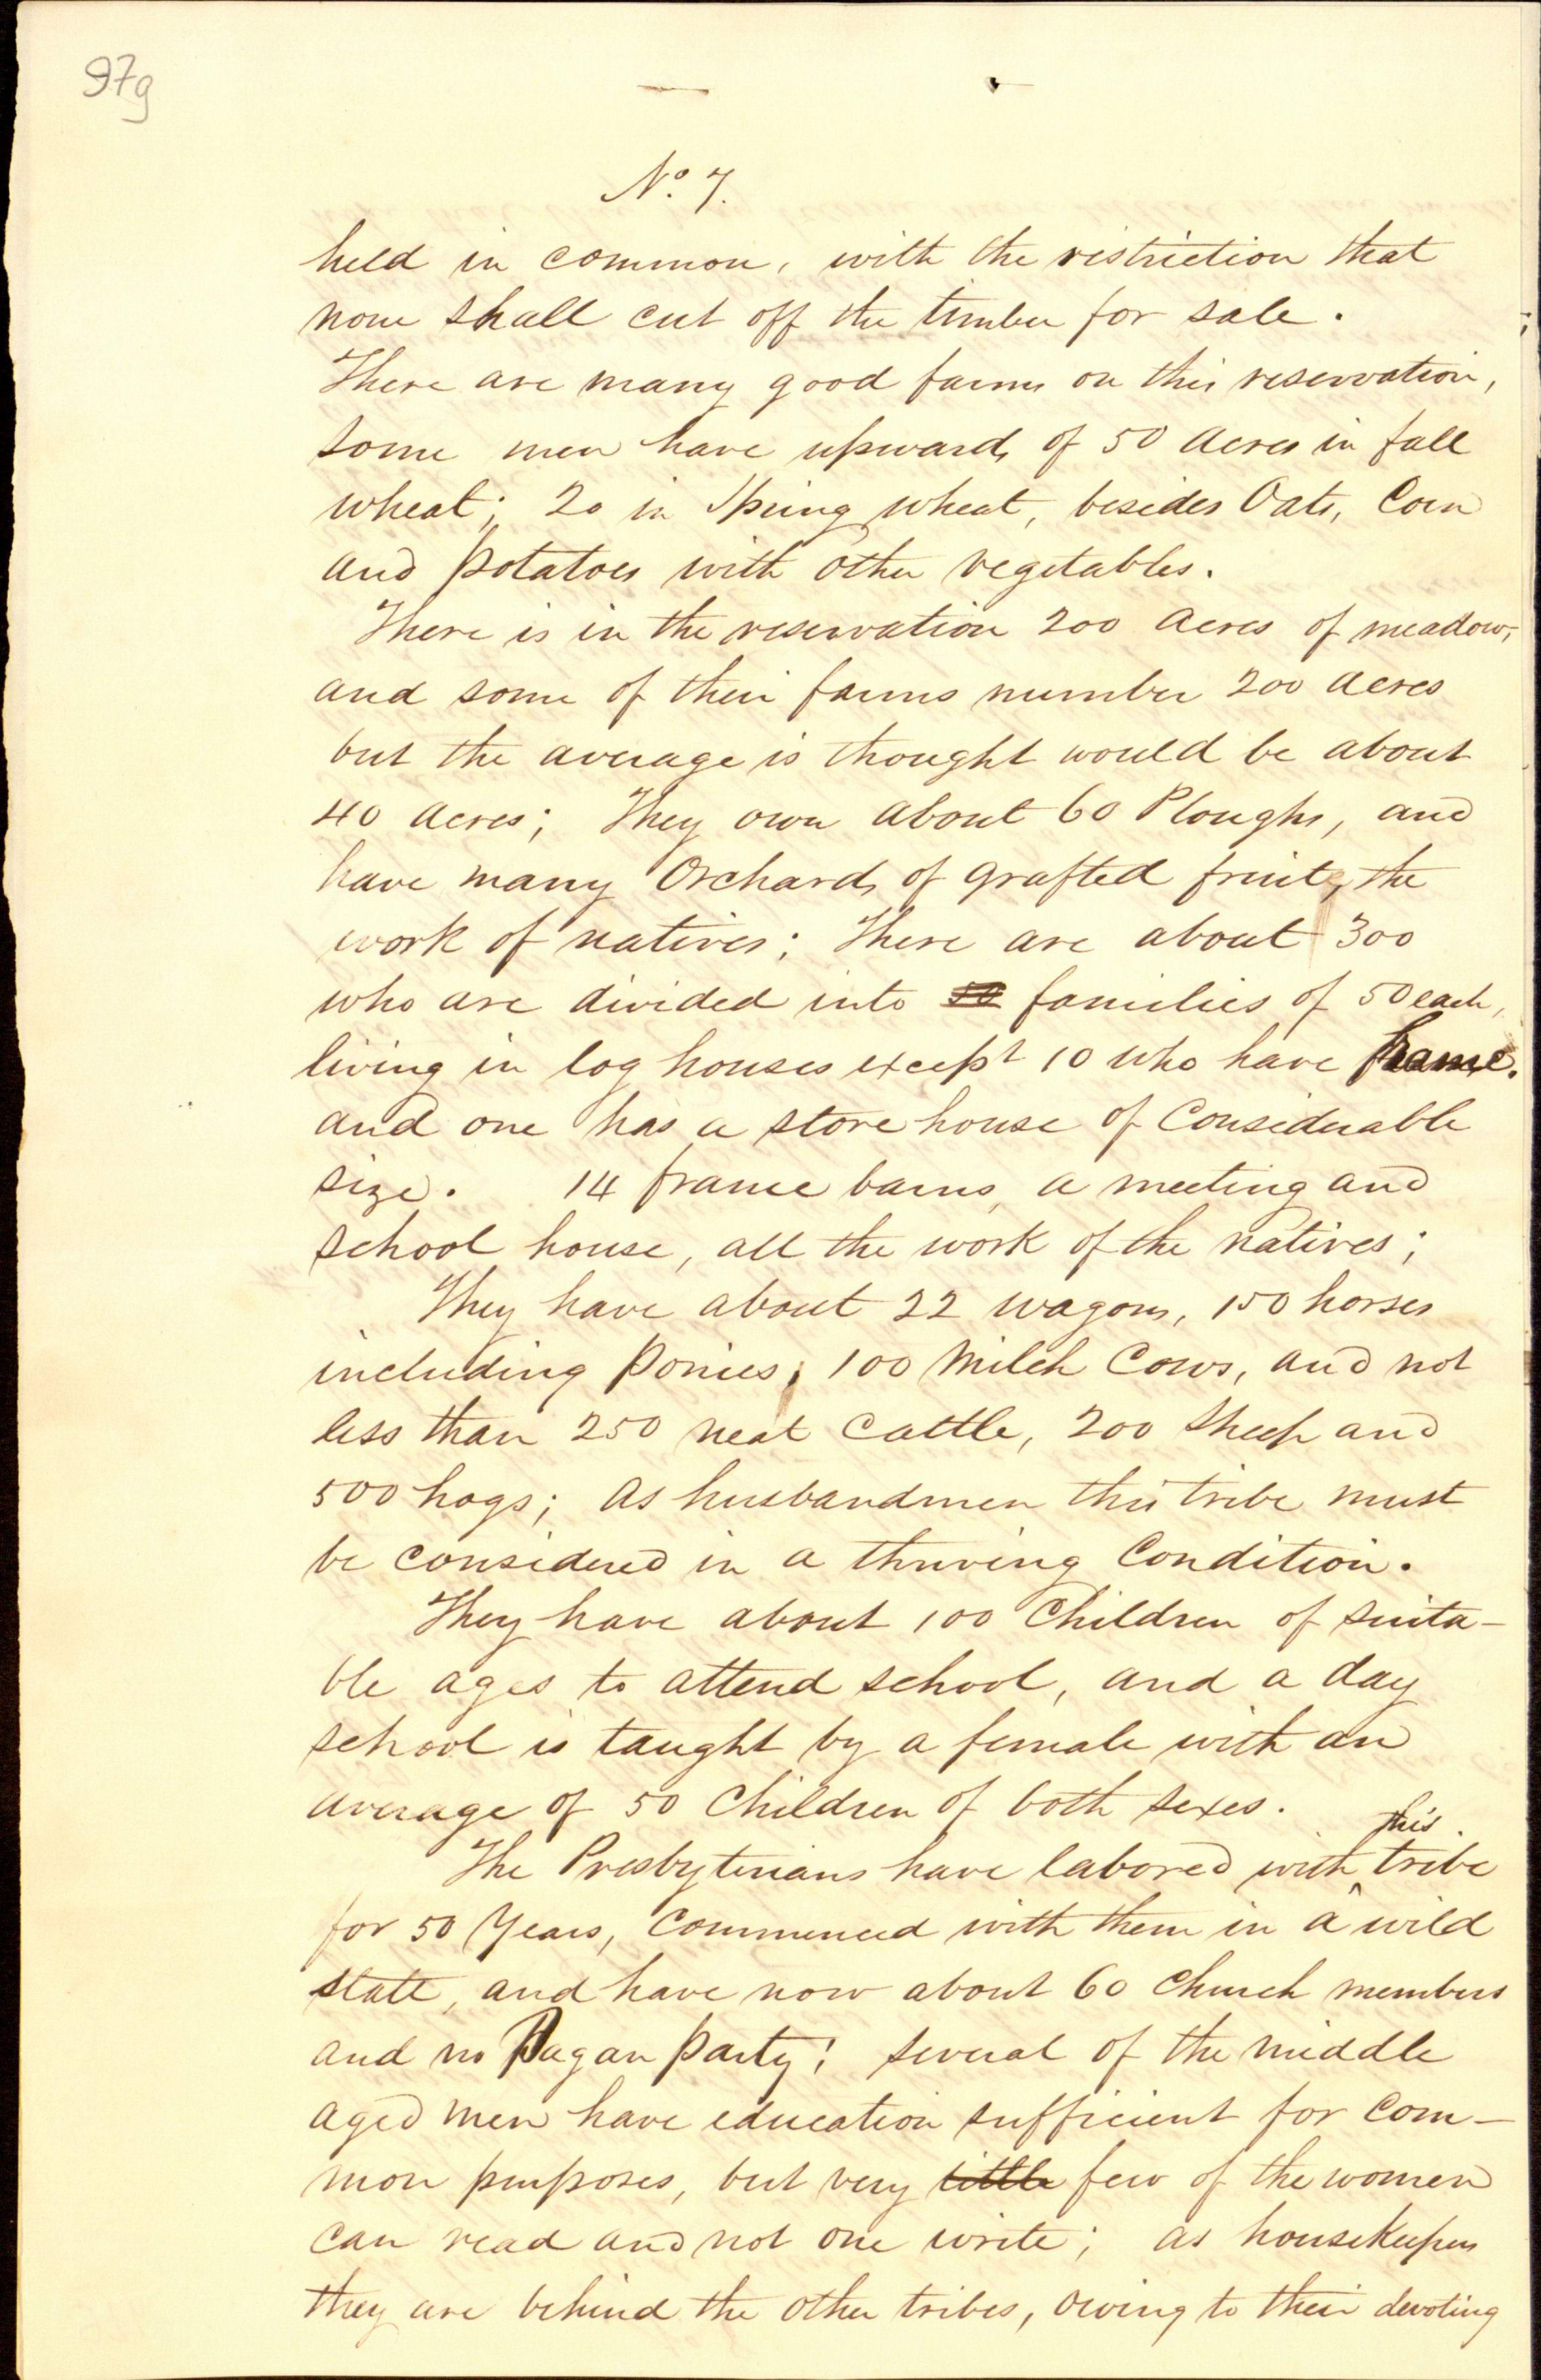 97g
No. 7.
held in common, with the restriction that
none shall cut off the timber for sale.
There are many good farms on this reservation,
some men have upwards of 50 acres in fall
wheat; 20 in Spring wheat, besides Oats, Corn
and potatoes with other vegetables.
There is in the reservation 200 acres of meadow,
and some of their farms number 200 acres
but the average is thought would be about
40 acres; They own about 60 Ploughs, and
have many Orchards of grafted fruit, the
work of natives; There are about 300
who are divided into 50 families of 50 each,
living in log houses except 10 who have frame.
and one has a store house of Considerable
size. 14 frame barns, a meeting and
school house, all the work of the natives;
They have about 22 wagons, 150 horses
including ponies, 100 Milch Cows, and not
less than 250 neat Cattle, 200 Sheep and
500 hogs; as husbandmen this tribe must
be considered in a thriving Condition.
They have about 100 Children of suita-
ble ages to attend school, and a day
school is taught by a female with an
average of 50 Children of both sexes.
The Presbyterians have labored with this tribe
for 50 Years, Commenced with them in a wild
state, and have now about 60 Church members
and no Pagan party; several of the middle
aged men have education sufficient for Com-
mon purposes, but very little few of the women
can read and not one write; as housekeepers
they are behind the other tribes, owing to their devoting